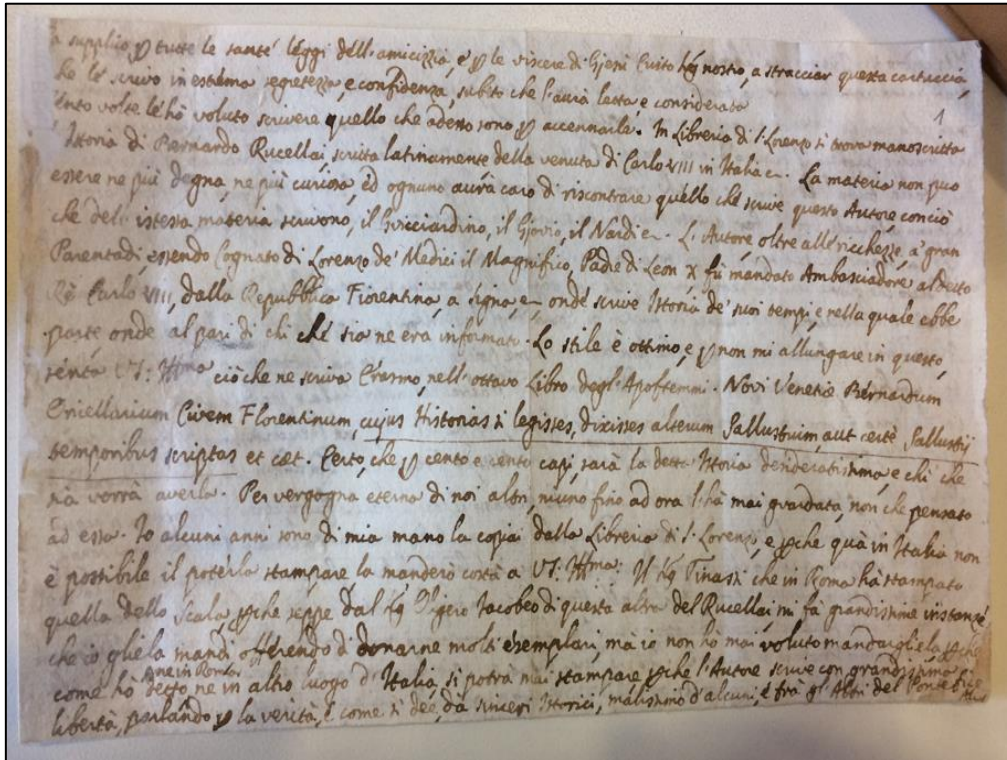 a supplico, p tutte le sante leggi dell'amicizzia, e p le viscere di Giesù Cristo Sig nostro, a stracciar questa cartuccia,
che le scrivo in estrema segretezza, e confidenza, subito che l'avrà letta, e considerata
cento volte le hò voluto scrivere quello che adesso sono p accennarle. In Libreria di S. Lorenzo si trova manoscritta
Istoria di Bernardo Rucellai scritta latinamente della venuta di Carlo VIII in Italia La materia non può
essere ne più degna, ne più curiosa, ed ognuno avrà caro di riscontrare quello che scrive questo Autore, con ciò
che del istessa materia scrivono, il Guicciardino, il Giovio, il Nardi L'Autore, oltre alle ricchezze, a' gran
Parentadi, essendo Cognato di Lorenzo de' Medici il Magnifico, Padre di Leon X, fù mandato Ambasciadore al detto
Rè Carlo VIII, dalla Repubblica Fiorentina, a Signa, onde scrive Istoria de' suoi tempi, e nella quale ebbe
parte, onde al pari di chi che sia ne era informato. Lo stile è ottimo, e p non mi allungare in questo,
senta VS: Ill:ma ciò che ne scriva Erasmo, nell'ottavo Libro degl'Apoftemmi. Novi Venetiæ Bernardum
Oricellarium Civem Florentinum, cujus Historias si legisses, dixisses alterum Sallustium, aut certè Sallustij
temporibus scriptas et cæt. Certo, che p cento e cento capi, sarà la detta Istoria desideratissima, e chi che
sia vorrà averla. Per vergogna eterna di noi altri, niuno fino ad ora l'hà mai guardata, non che pensato
ad essa. Io alcuni anni sono di mia mano la copiai dalla Libreria di S. Lorenzo, e pche quà in Italia non
è possibile il poterla stampare la manderò costà a VS: Ill:ma: Il Sig Tinassi che in Roma hà stampato
quella dello Scala, pche seppe dal Sig Oligero Jacobeo di questa altra del Rucellai, mi fà grandissime instanze
che io gliela mandi offerendo di donarne molti esemplari, mà io non hò mai voluto mandargliela, pche
come hò detto, ne in Roma, ne in altro luogo d'Italia, si potrà mai stampare pche l'Autore scrive con grandissima
libertà, parlando p la verità, e come si dee, dà sinceri Istorici, malissimo d'alcuni, e frà gl'Altri del Pontefice
1